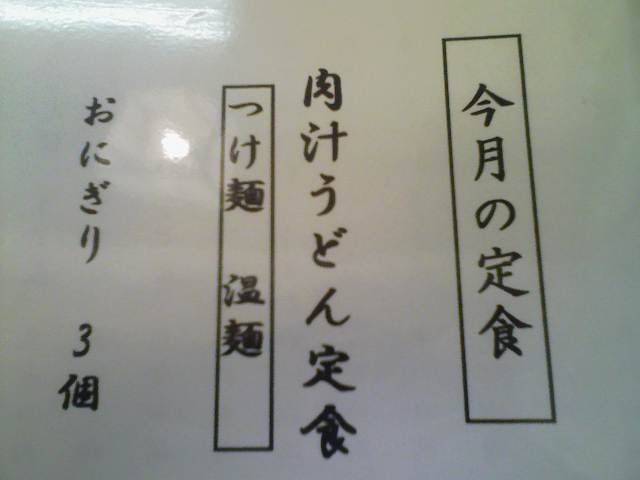 今月の定食
肉汁うどん定食
つけ麺 温麺
おにぎり 3個